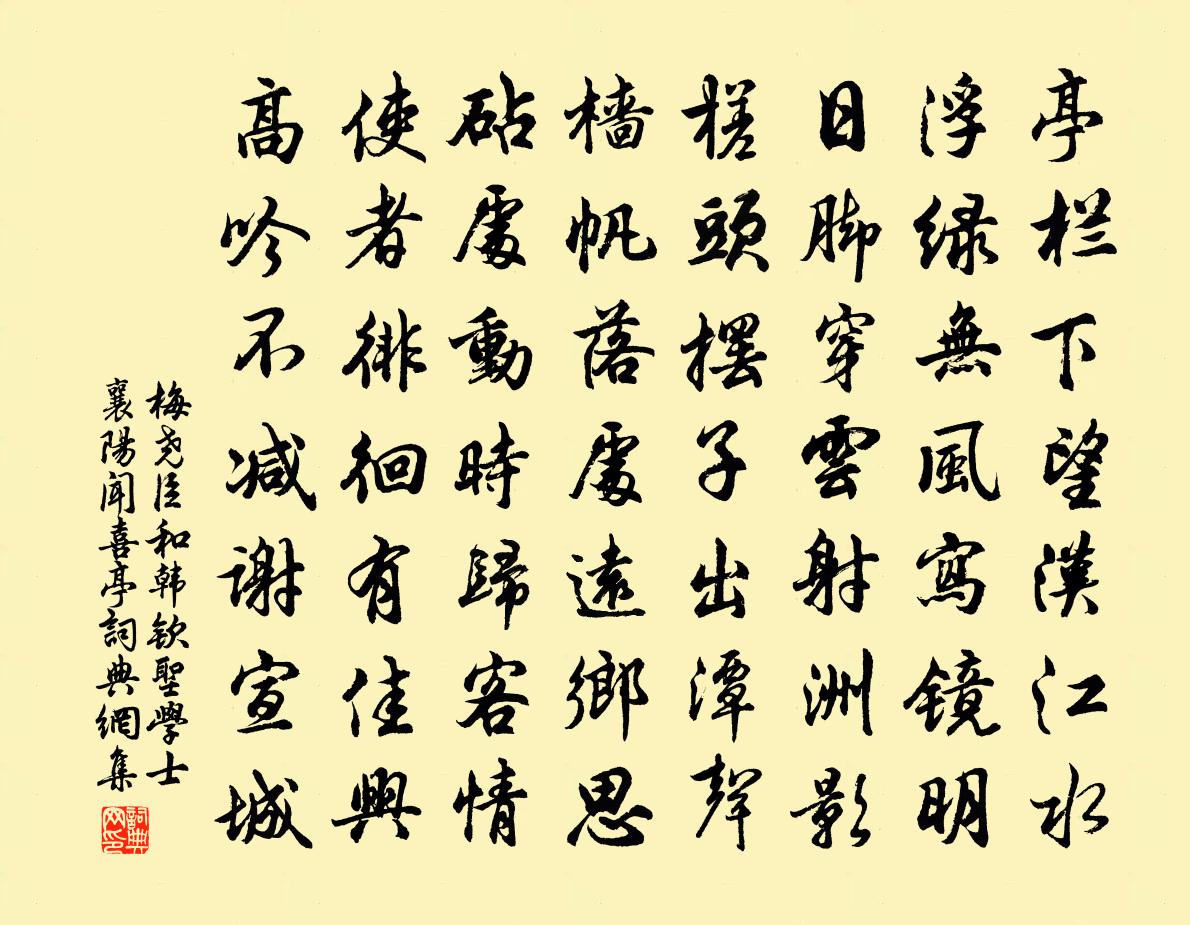 亭栏下望漢江水
浮绿無風寫镜明
日脚穿雲射洲影
槎頭摆子出潭聲
檣帆落處遠鄉思
砧處動時歸客情
使者徘徊有佳興
高吟不减谢宣城
梅尧臣和韩钦聖學士
襄陽闻喜亭詞典網集
詞典
网印